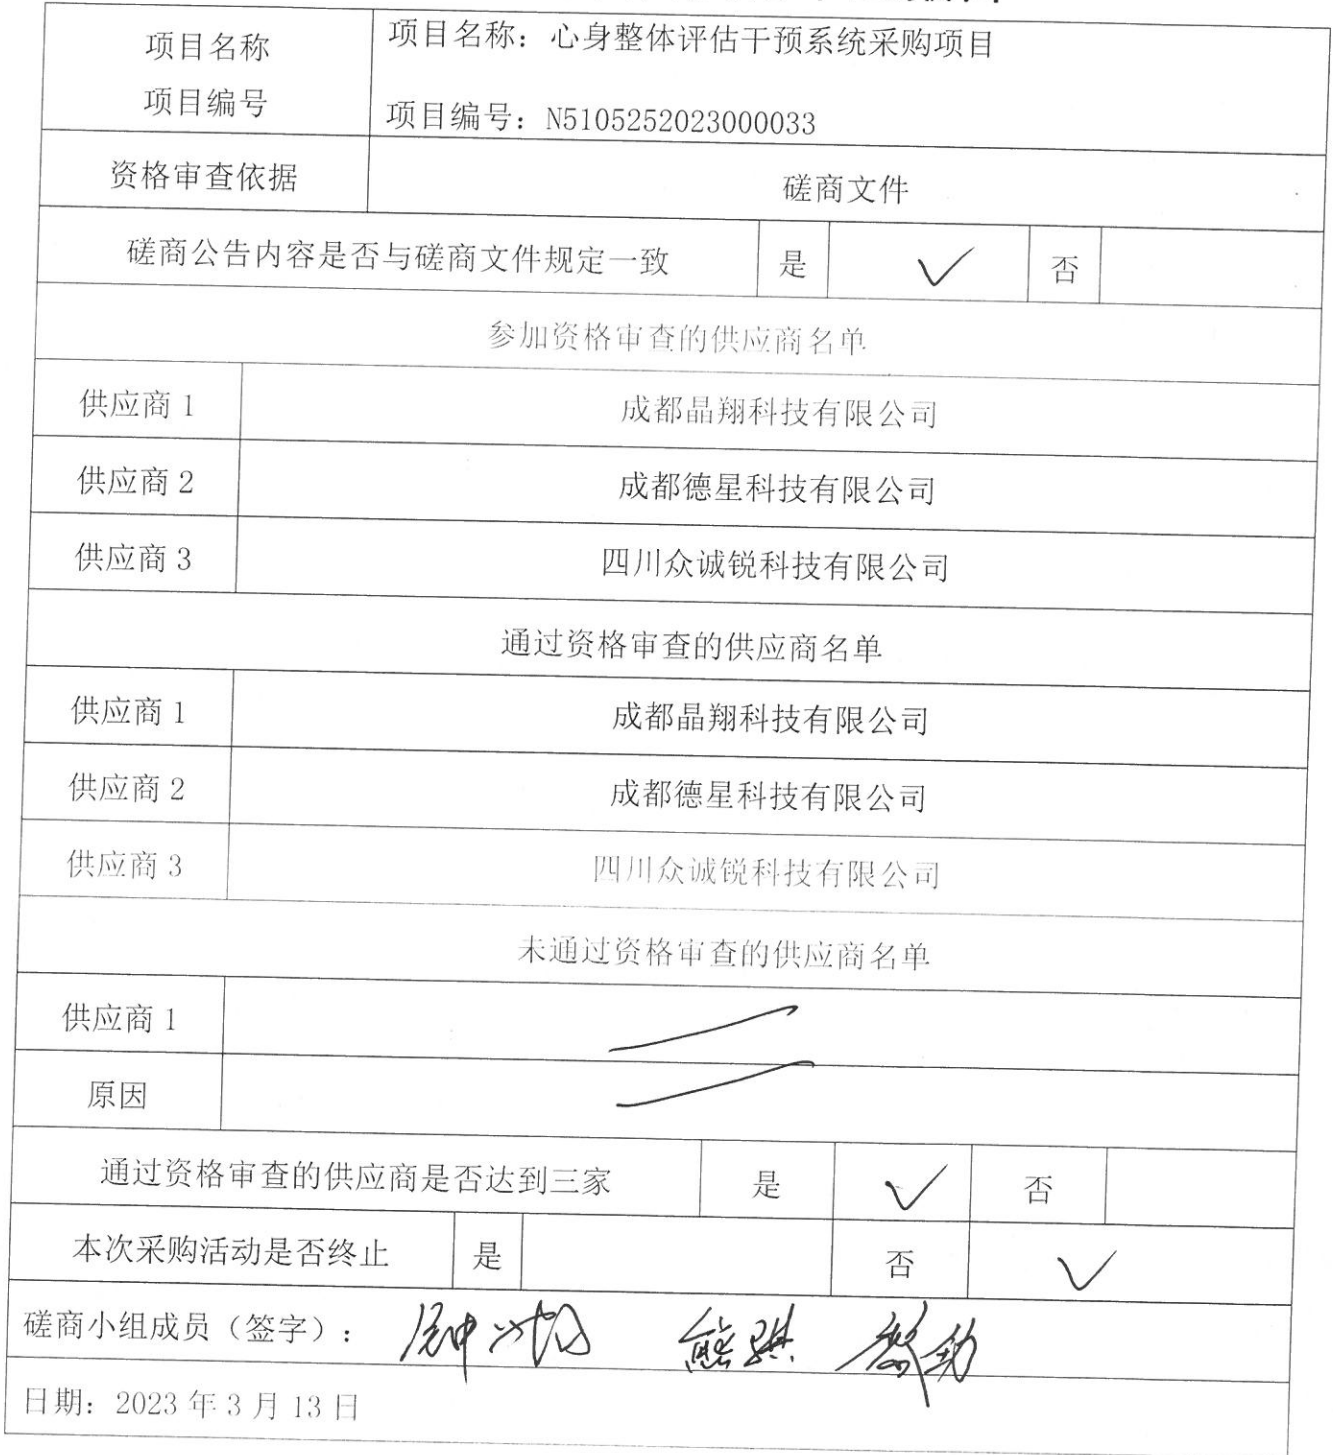 项目名称
项目编号
项目名称：心身整体评估干预系统采购项目
项目编号：N5105252023000033
资格审查依据 磋商文件
磋商公告内容是否与磋商文件规定一致 是 ✓ 否
参加资格审查的供应商名单
供应商 1 成都晶翔科技有限公司
供应商 2 成都德星科技有限公司
供应商 3 四川众诚锐科技有限公司
通过资格审查的供应商名单
供应商 1 成都晶翔科技有限公司
供应商 2 成都德星科技有限公司
供应商 3 四川众诚锐科技有限公司
未通过资格审查的供应商名单
供应商 1
原因
通过资格审查的供应商是否达到三家 是 ✓ 否
本次采购活动是否终止 是 否 ✓
磋商小组成员（签字）：
日期：2023 年 3 月 13 日